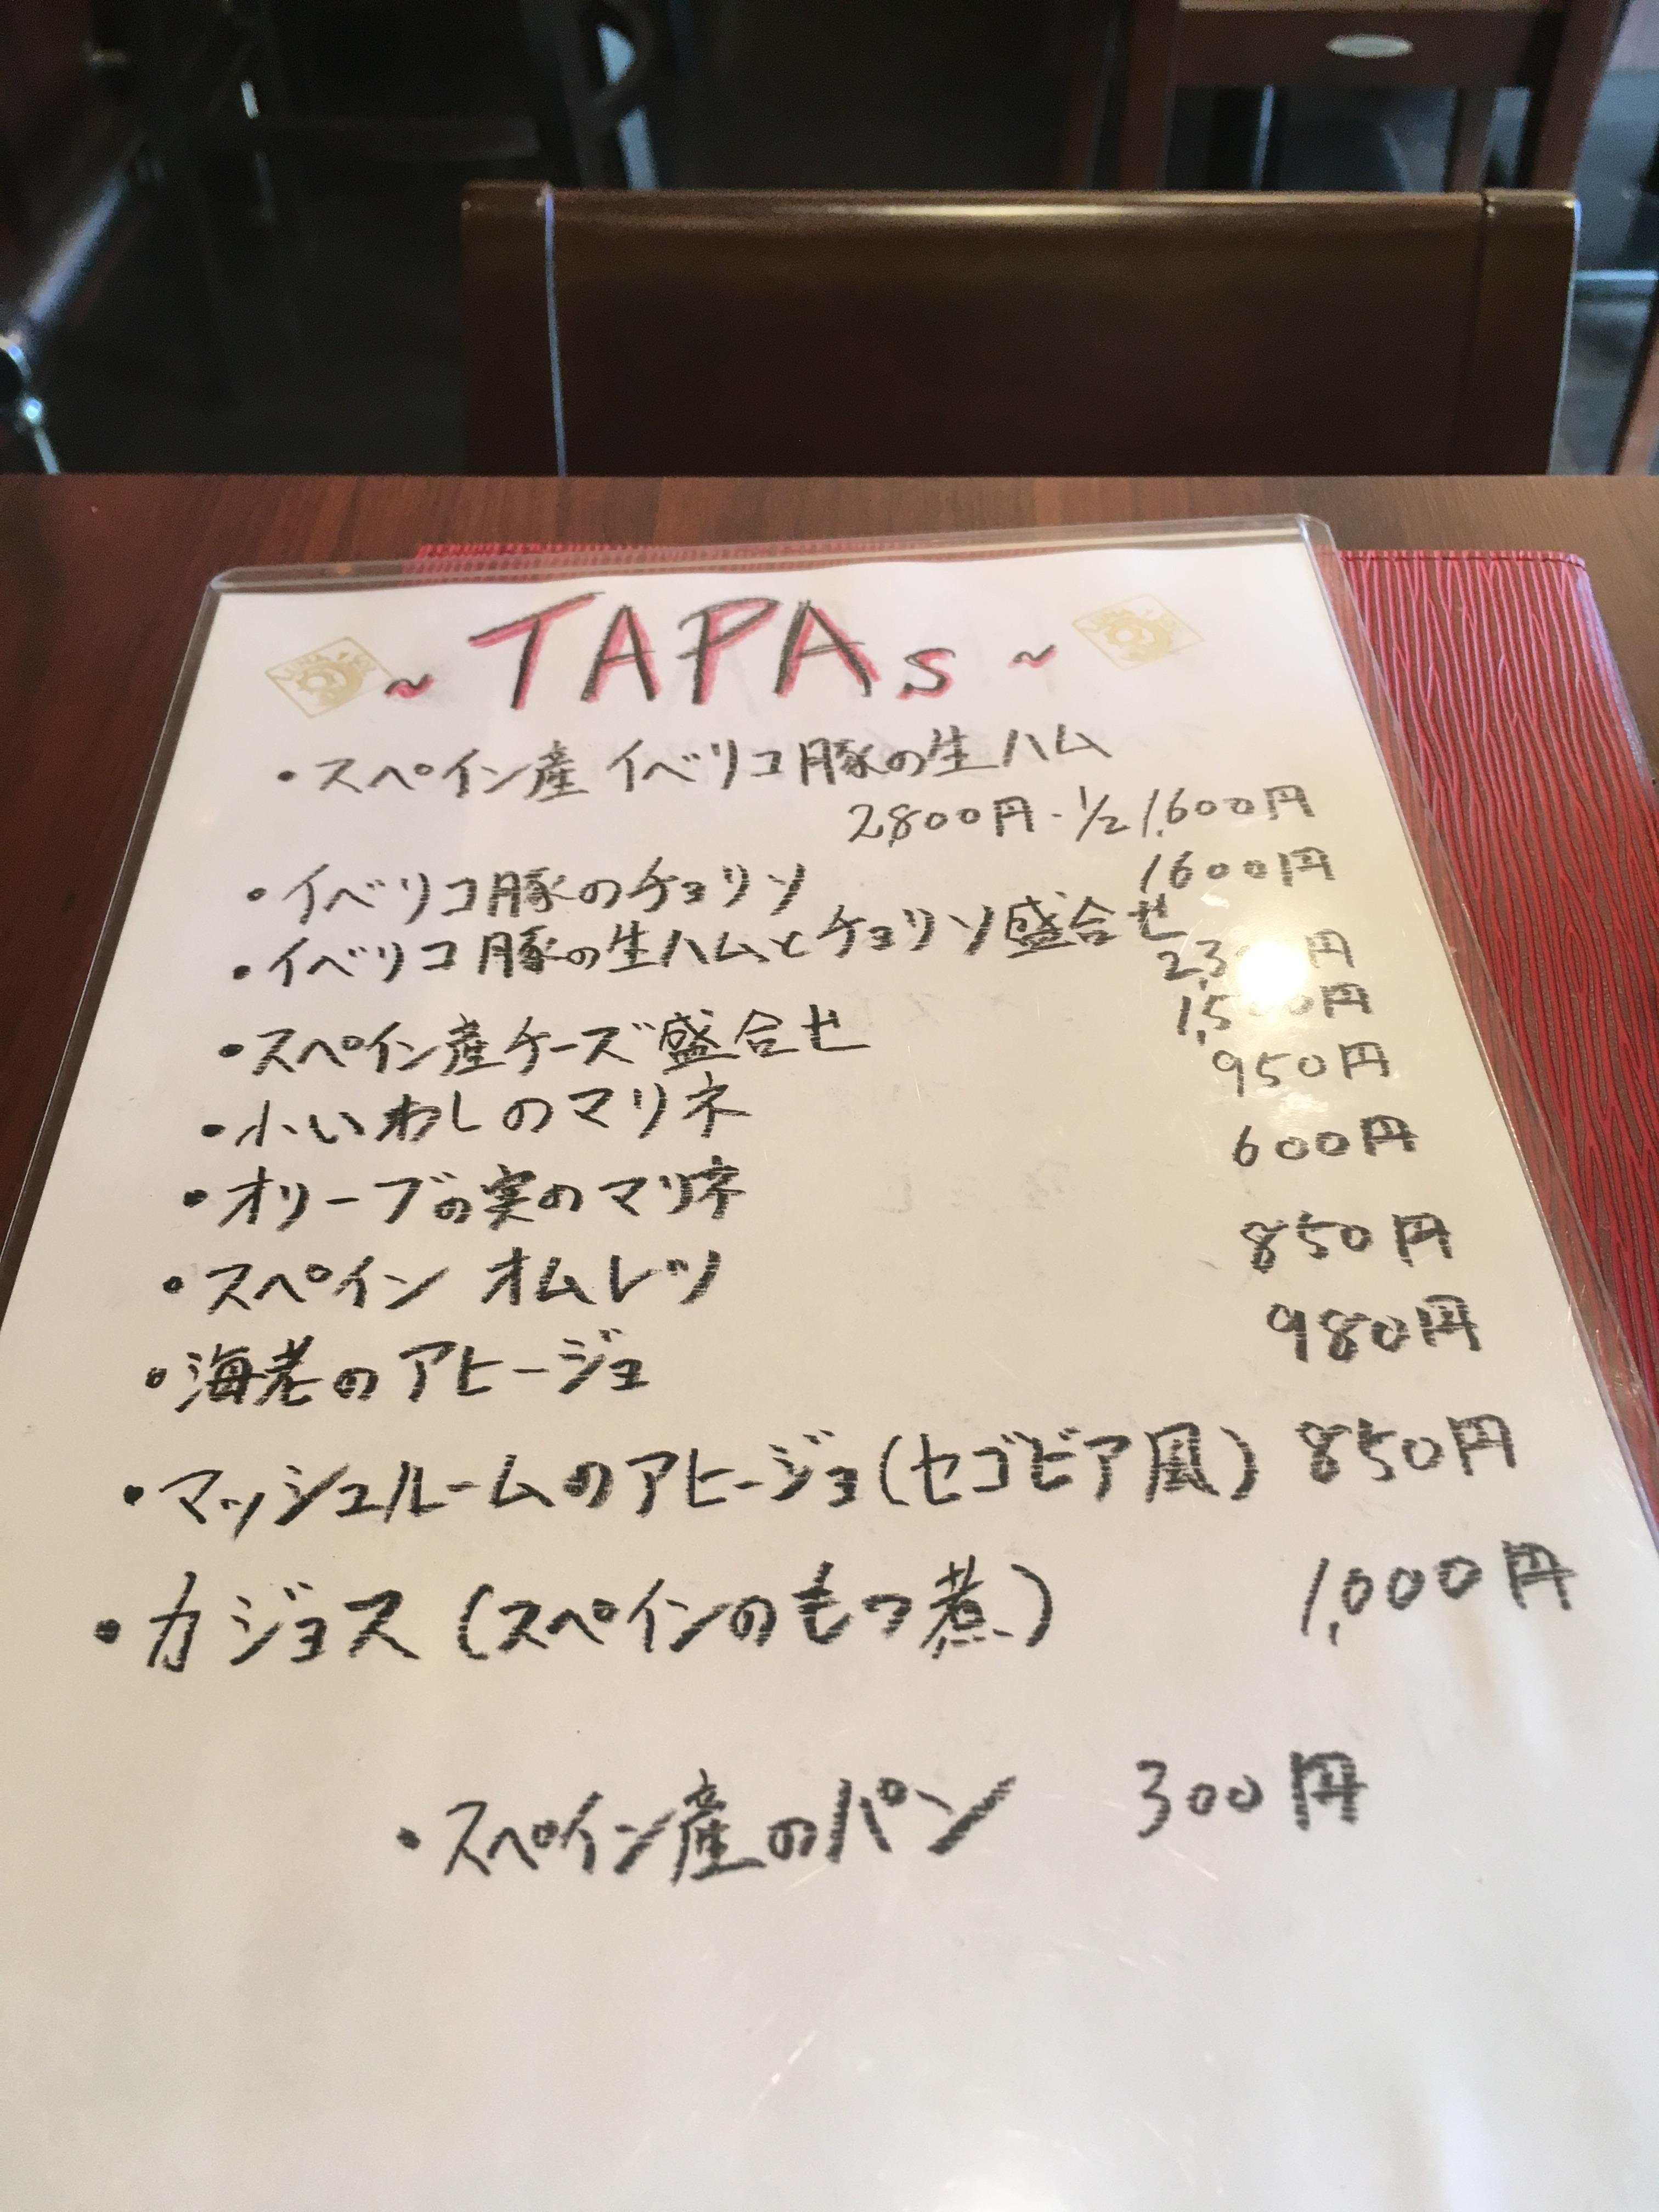 ~ TAPAs ~
・スペイン産 イベリコ豚の生ハム
2,800円・1/2 1,600円
・イベリコ豚のチョリソ 1600円
・イベリコ豚の生ハムとチョリソ盛合せ
円
・スペイン産チーズ盛合せ 円
・小いわしのマリネ 950円
・オリーブの実のマリネ 600円
・スペイン オムレツ 850円
・海老のアヒージョ 980円
・マッシュルームのアヒージョ(セゴビア風) 850円
・カジョス (スペインのもつ煮) 1,000円
・スペイン産のパン 300円